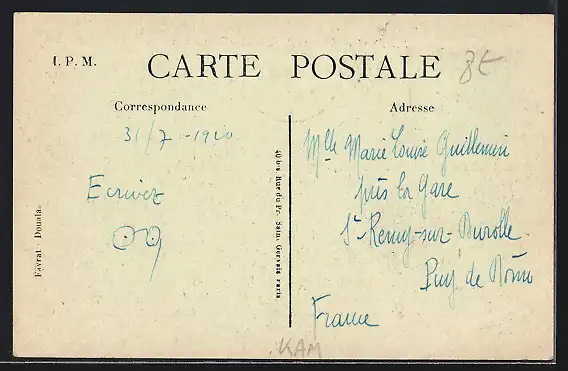 I. P. M.
CARTE POSTALE
8€
Correspondance
Adresse
31/7-1920
Ecrivez
Mlle Marie Louise Guillemin
près la Gare
St-Remy-sur-Durolle
Puy de Dôme
France
Favrat - Douala
40 bis Rue du Pr. Sain. Gervais paris
KAM